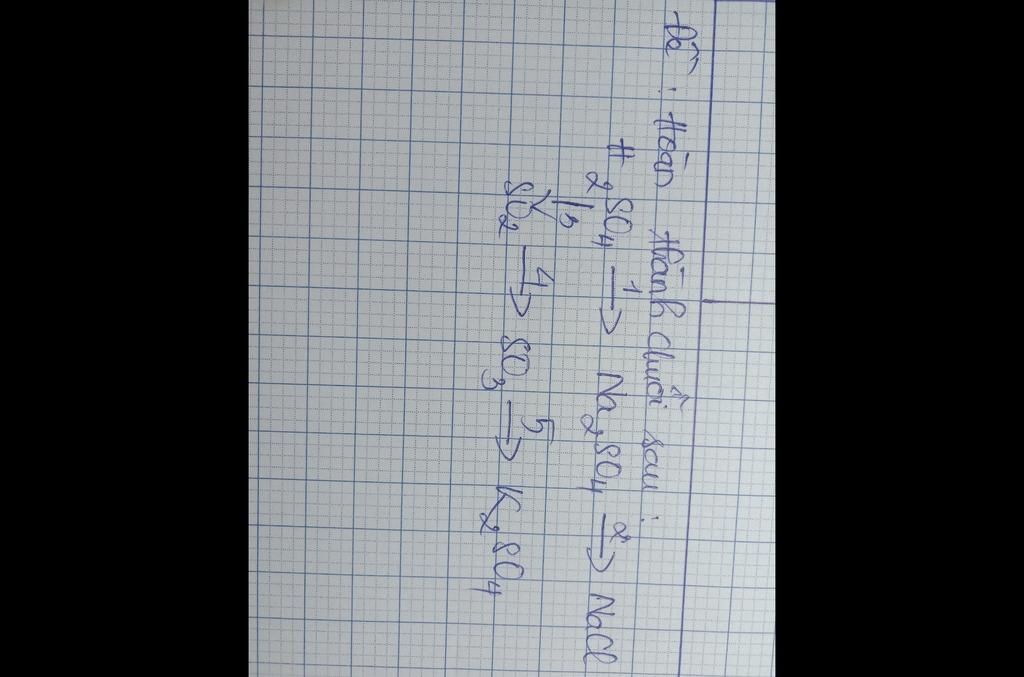 Đề : Hoàn thành chuỗi sau :
H₂SO₄ —1→ Na₂SO₄ —2→ NaCl
↓3
SO₂ —4→ SO₃ —5→ K₂SO₄